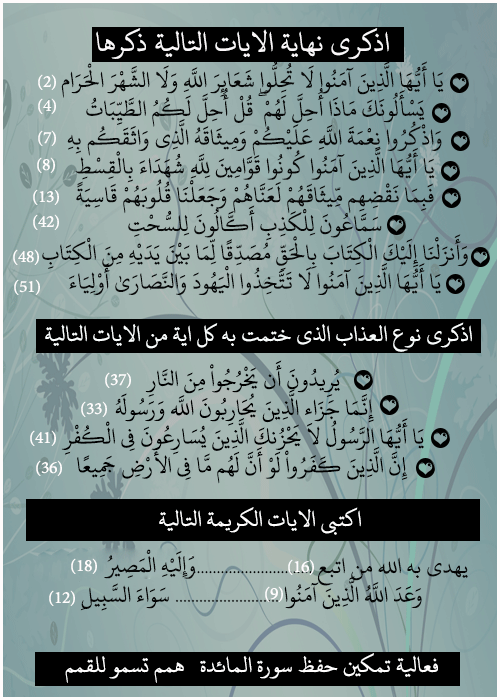 اذكرى نهاية الايات التالية ذكرها
يَا أَيُّهَا الَّذِينَ آمَنُوا لَا تُحِلُّوا شَعَايِرَ اللَّهِ وَلَا الشَّهْرَ الْحَرَام (2)
يَسْأَلُونَكَ مَاذَا أُحِلَّ لَهُمْ قُلْ أُحِلَّ لَكُمُ الطَّيِّبَاتُ (4)
وَاذْكُرُوا نِعْمَةَ اللَّهِ عَلَيْكُمْ وَمِيثَاقَهُ الَّذِى وَاثَقَكُم بِهِ (7)
يَا أَيُّهَا الَّذِينَ آمَنُوا كُونُوا قَوَّامِينَ لِلَّهِ شُهَدَاءَ بِالْقِسْطِ (8)
فَبِمَا نَقْضِهِم مِّيثَاقَهُمْ لَعَنَّاهُمْ وَجَعَلْنَا قُلُوبَهُمْ قَاسِيَةً (13)
سَمَّاعُونَ لِلْكَذِبِ أَكَّالُونَ لِلسُّحْتِ (42)
وَأَنزَلْنَا إِلَيْكَ الْكِتَابَ بِالْحَقِّ مُصَدِّقًا لِّمَا بَيْنَ يَدَيْهِ مِنَ الْكِتَابِ (48)
يَا أَيُّهَا الَّذِينَ آمَنُوا لَا تَتَّخِذُوا الْيَهُودَ وَالنَّصَارَىٰ أَوْلِيَاءَ (51)
اذكرى نوع العذاب الذى ختمت به كل اية من الايات التالية
يُرِيدُونَ أَن يَخْرُجُواْ مِنَ النَّارِ (37)
إِنَّمَا جَزَاء الَّذِينَ يُحَارِبُونَ اللَّه وَرَسُولَهُ (33)
يَا أَيُّهَا الرَّسُولُ لاَ يَحْزُنكَ الَّذِينَ يُسَارِعُونَ فِى الْكُفْرِ (41)
إِنَّ الَّذِينَ كَفَرُواْ لَوْ أَنَّ لَهُم مَّا فِى الأَرْضِ جَمِيعًا (36)
اكتبى الايات الكريمة التالية
يهدى به الله من اتبع (16)........................وَإِلَيْهِ الْمَصِيرُ (18)
وَعَدَ اللَّهُ الَّذِينَ آمَنُوا(9)........................ سَوَاءَ السَّبِيلِ (12)
فعالية تمكين حفظ سورة المائدة همم تسمو للقمم